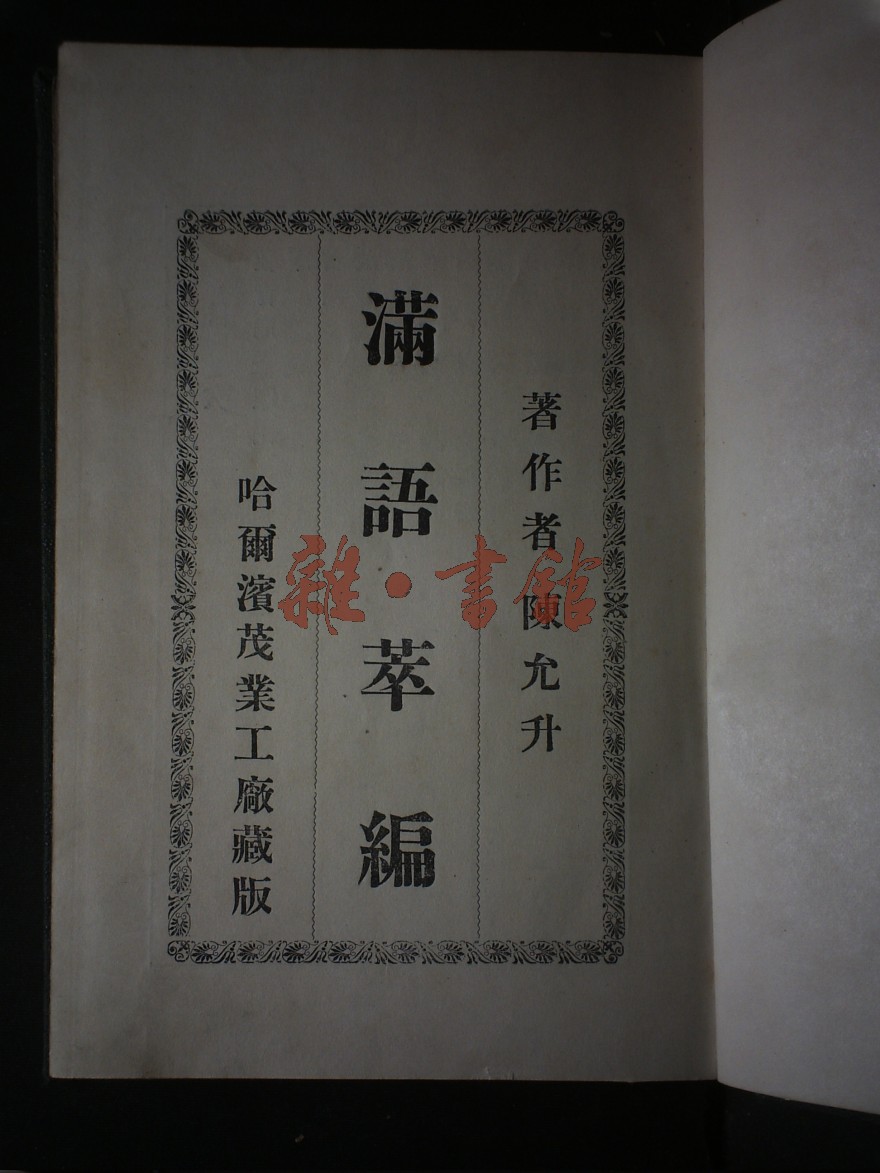 著作者陳允升
滿語萃編
哈爾濱茂業工廠藏版
雜·書館